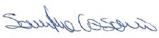 Sandra Cassano